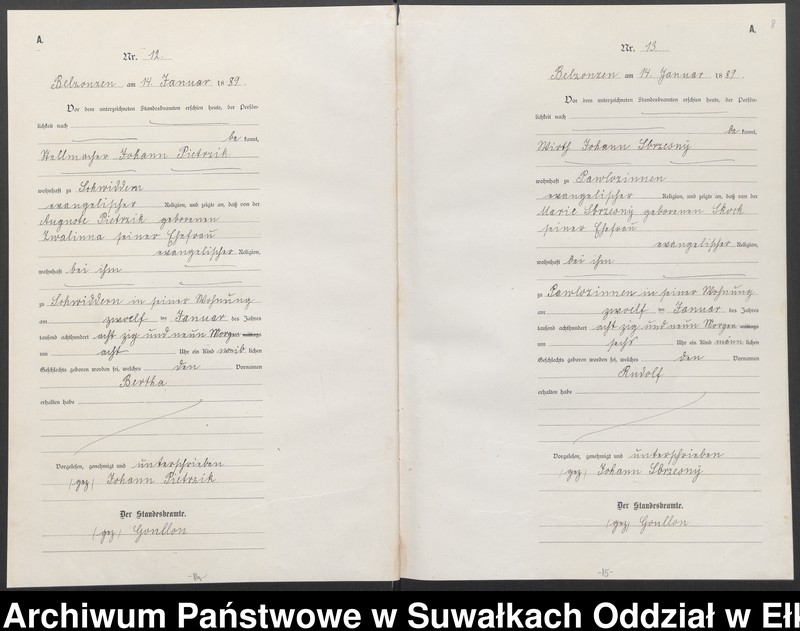 A.
Nr. 12.
Belzonzen am 14. Januar 1889.
Vor dem unterzeichneten Standesbeamten erschien heute, der Persön-
lichkeit nach
be kannt,
Stellmacher Johann Pietrzik
wohnhaft zu Sokwiddern
evangelischer Religion, und zeigte an, daß von der
Auguste Pietrzik geborenen
Zwalinna seiner Ehefrau
evangelischer Religion,
wohnhaft bei ihm
zu Sokwiddern in seiner Wohnung
am zwoelf ten Januar des Jahres
tausend achthundert acht zig und neun Morgen mittags
um acht Uhr ein Kind weib lichen
Geschlechts geboren worden sei, welches den Vornamen
Bertha
erhalten habe
Vorgelesen, genehmigt und unterschrieben
(gez) Johann Pietrzik
Der Standesbeamte.
(gez) Goullon
8
A.
Nr. 13
Belzonzen am 14. Januar 1889.
Vor dem unterzeichneten Standesbeamten erschien heute, der Persön-
lichkeit nach
be kannt,
Wirth Johann Sbrzesny
wohnhaft zu Pawlozinnen
evangelischer Religion, und zeigte an, daß von der
Marie Sbrzesny geborenen Skock
seiner Ehefrau
evangelischer Religion,
wohnhaft bei ihm
zu Pawlozinnen in seiner Wohnung
am zwoelf ten Januar des Jahres
tausend achthundert acht zig und neun Morgen mittags
um sechs Uhr ein Kind männ lichen
Geschlechts geboren worden sei, welches den Vornamen
Rudolf
erhalten habe
Vorgelesen, genehmigt und unterschrieben
(gez) Johann Sbrzesny
Der Standesbeamte.
(gez) Goullon
-15-
Archiwum Państwowe w Suwałkach Oddział w Ełk